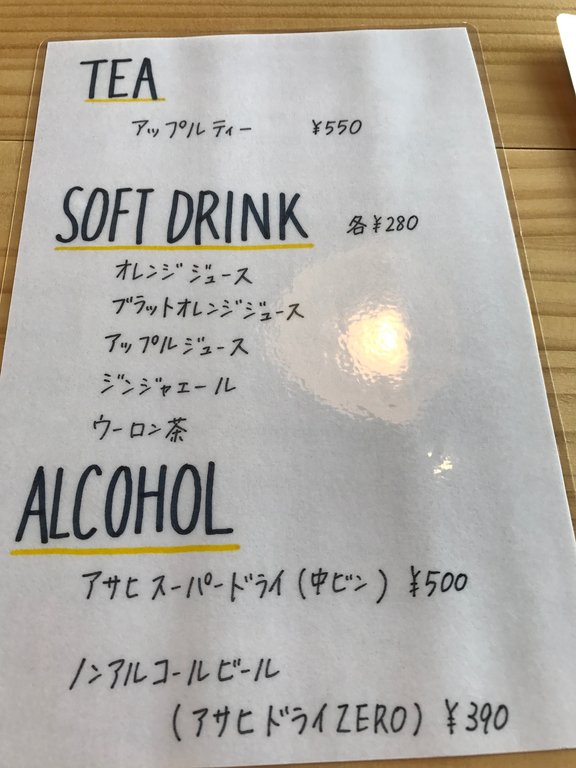 TEA
アップルティー ¥550
SOFT DRINK 各¥280
オレンジジュース
ブラットオレンジジュース
アップルジュース
ジンジャエール
ウーロン茶
ALCOHOL
アサヒ スーパードライ(中ビン) ¥500
ノンアルコールビール
(アサヒ ドライZERO) ¥390